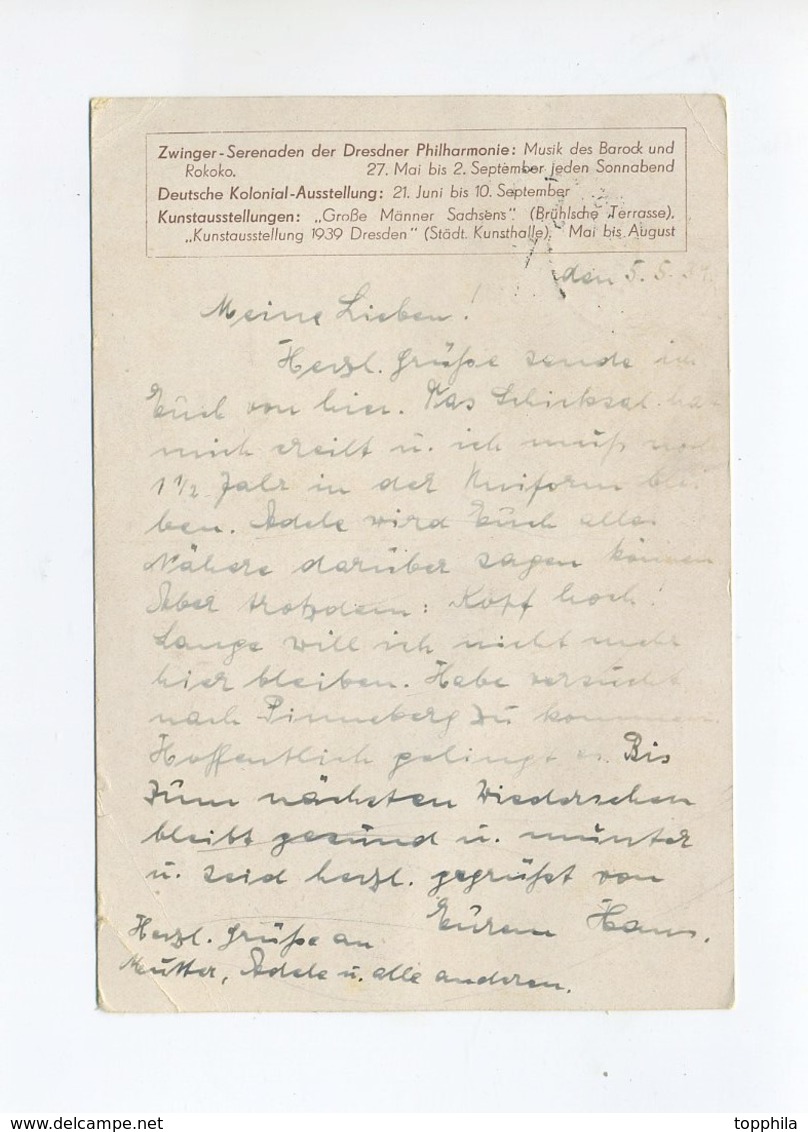 Zwinger-Serenaden der Dresdner Philharmonie: Musik des Barock und
Rokoko. 27. Mai bis 2. September jeden Sonnabend
Deutsche Kolonial-Ausstellung: 21. Juni bis 10. September
Kunstausstellungen: „Große Männer Sachsens“ (Brühlsche Terrasse),
„Kunstausstellung 1939 Dresden“ (Städt. Kunsthalle), Mai bis August
den 5. 5. 39.
Meine Lieben!
Herzl. Grüße sende ich
Euch von hier. Das Schicksal hat
mich ereilt u. ich muß noch
1 1/2 Jahr in der Uniform blei
ben. Adele wird Euch alles
Nähere darüber sagen können
Aber trotzdem: Kopf hoch!
Lange will ich nicht mehr
hier bleiben. Habe versucht
nach Pinneberg zu kommen.
Hoffentlich gelingt es. Bis
zum nächsten Wiedersehen
bleibt gesund u. munter
u. seid herzl. gegrüßt von
Eurem Hans.
Herzl. Grüße an
Mutter, Adele u. alle anderen.
topphila